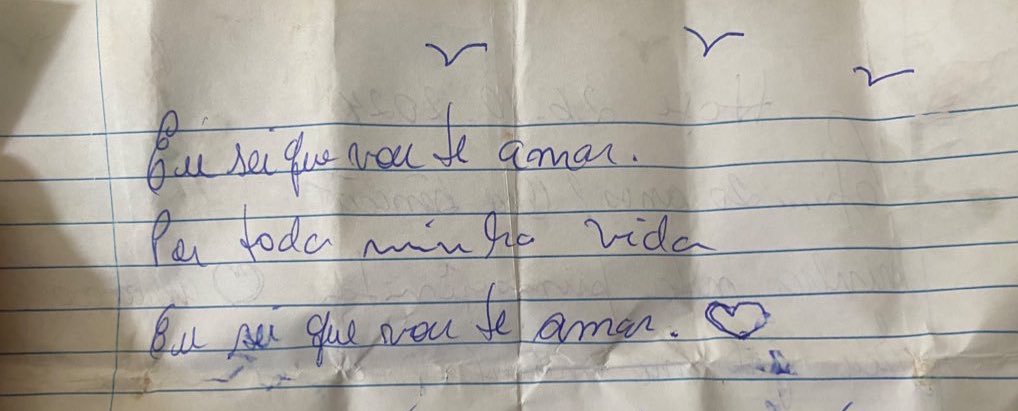 Eu sei que vou te amar.
Por toda minha vida
Eu sei que vou te amar.